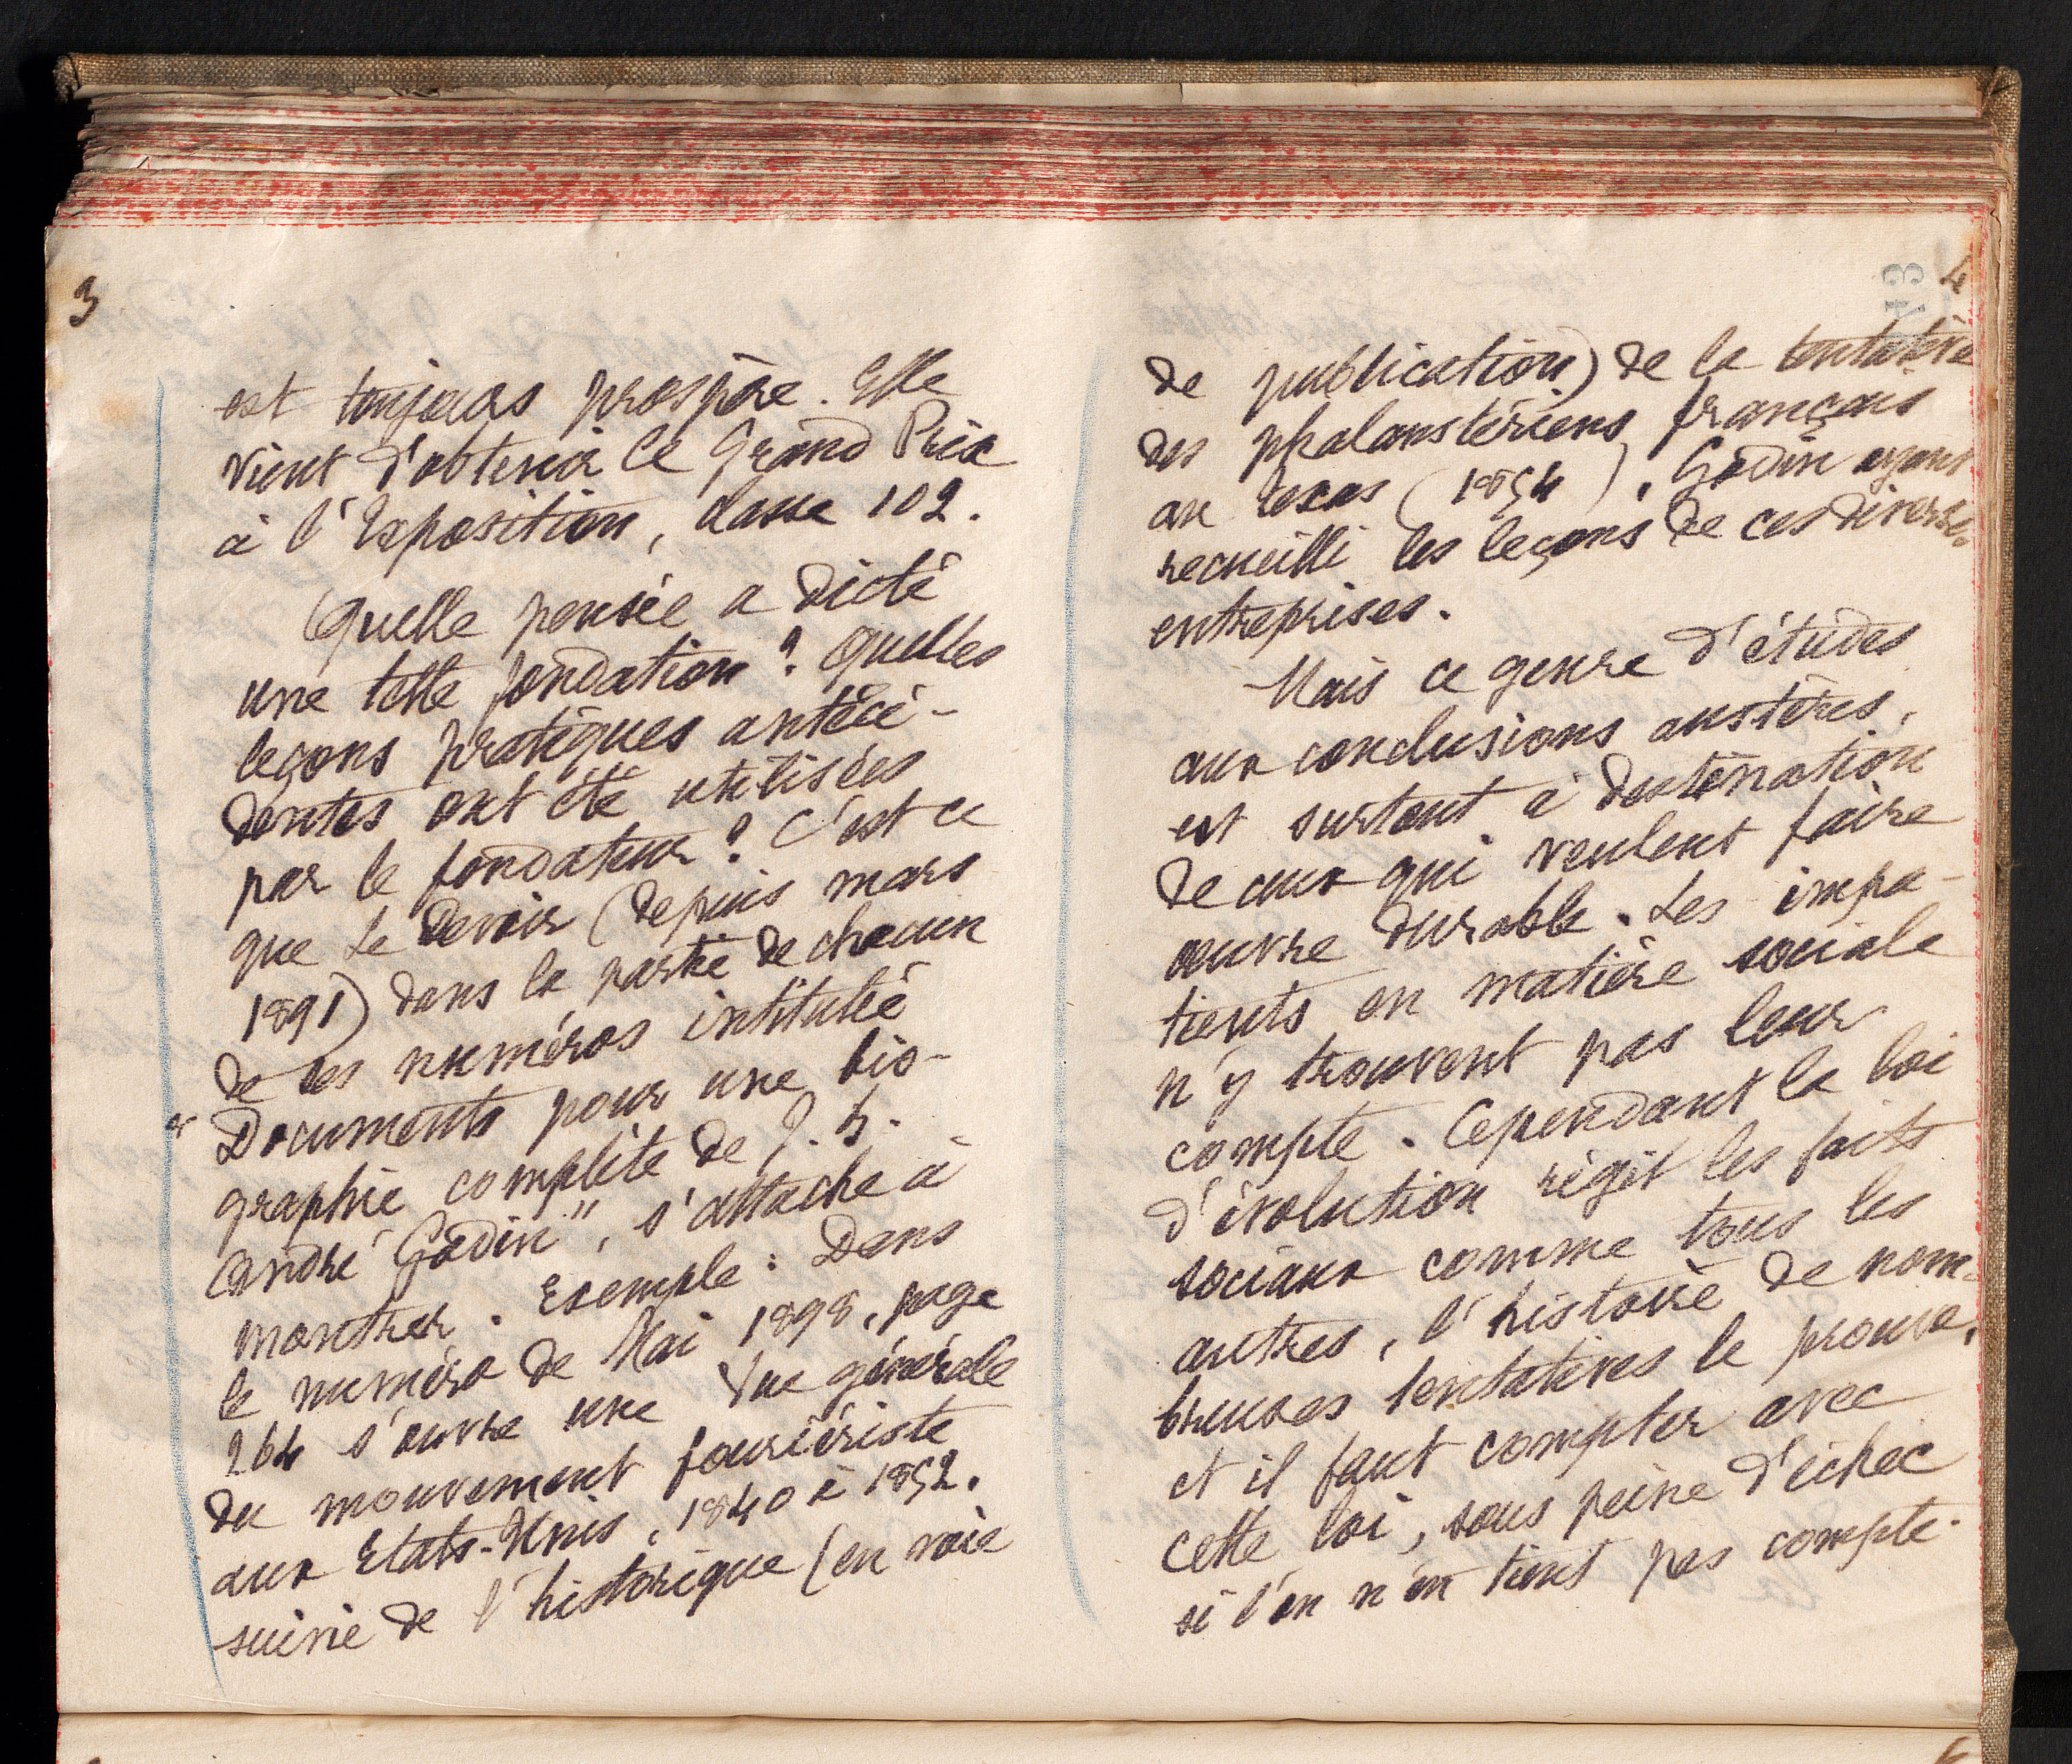 3
est toujours prospère. Elle
vient d'obtenir le Grand Prix
à l'Exposition, classe 102.
Quelle pensée a dicté
une telle fondation ? Quelles
leçons pratiques antécé-
dentes ont été utilisées
par le fondateur ? C'est ce
que Le Devoir (depuis mars
1891) dans la partie de chacun
de ses numéros intitulée
"Documents pour une bio-
graphie complète de J. B.
André Godin", s'attache à
montrer. Exemple : Dans
le numéro de Mai 1898, page
264 s'ouvre une vue générale
du mouvement fouriériste
aux Etats-Unis, 1840 à 1852.
suivie de l'historique (en voie
4
de publication) de la tentative
des phalanstériens français
au Texas (1854), Godin ayant
recueilli les leçons de ces diverses
entreprises.
Mais ce genre d'études
aux conclusions austères,
est surtout à destination
de ceux qui veulent faire
œuvre durable. Les impa-
tients en matière sociale
n'y trouvent pas leur
compte. Cependant la loi
d'évolution régit les faits
sociaux comme tous les
autres, l'histoire de nom-
breuses tentatives le prouve,
et il faut compter avec
cette loi, sous peine d'échec
si l'on n'en tient pas compte.